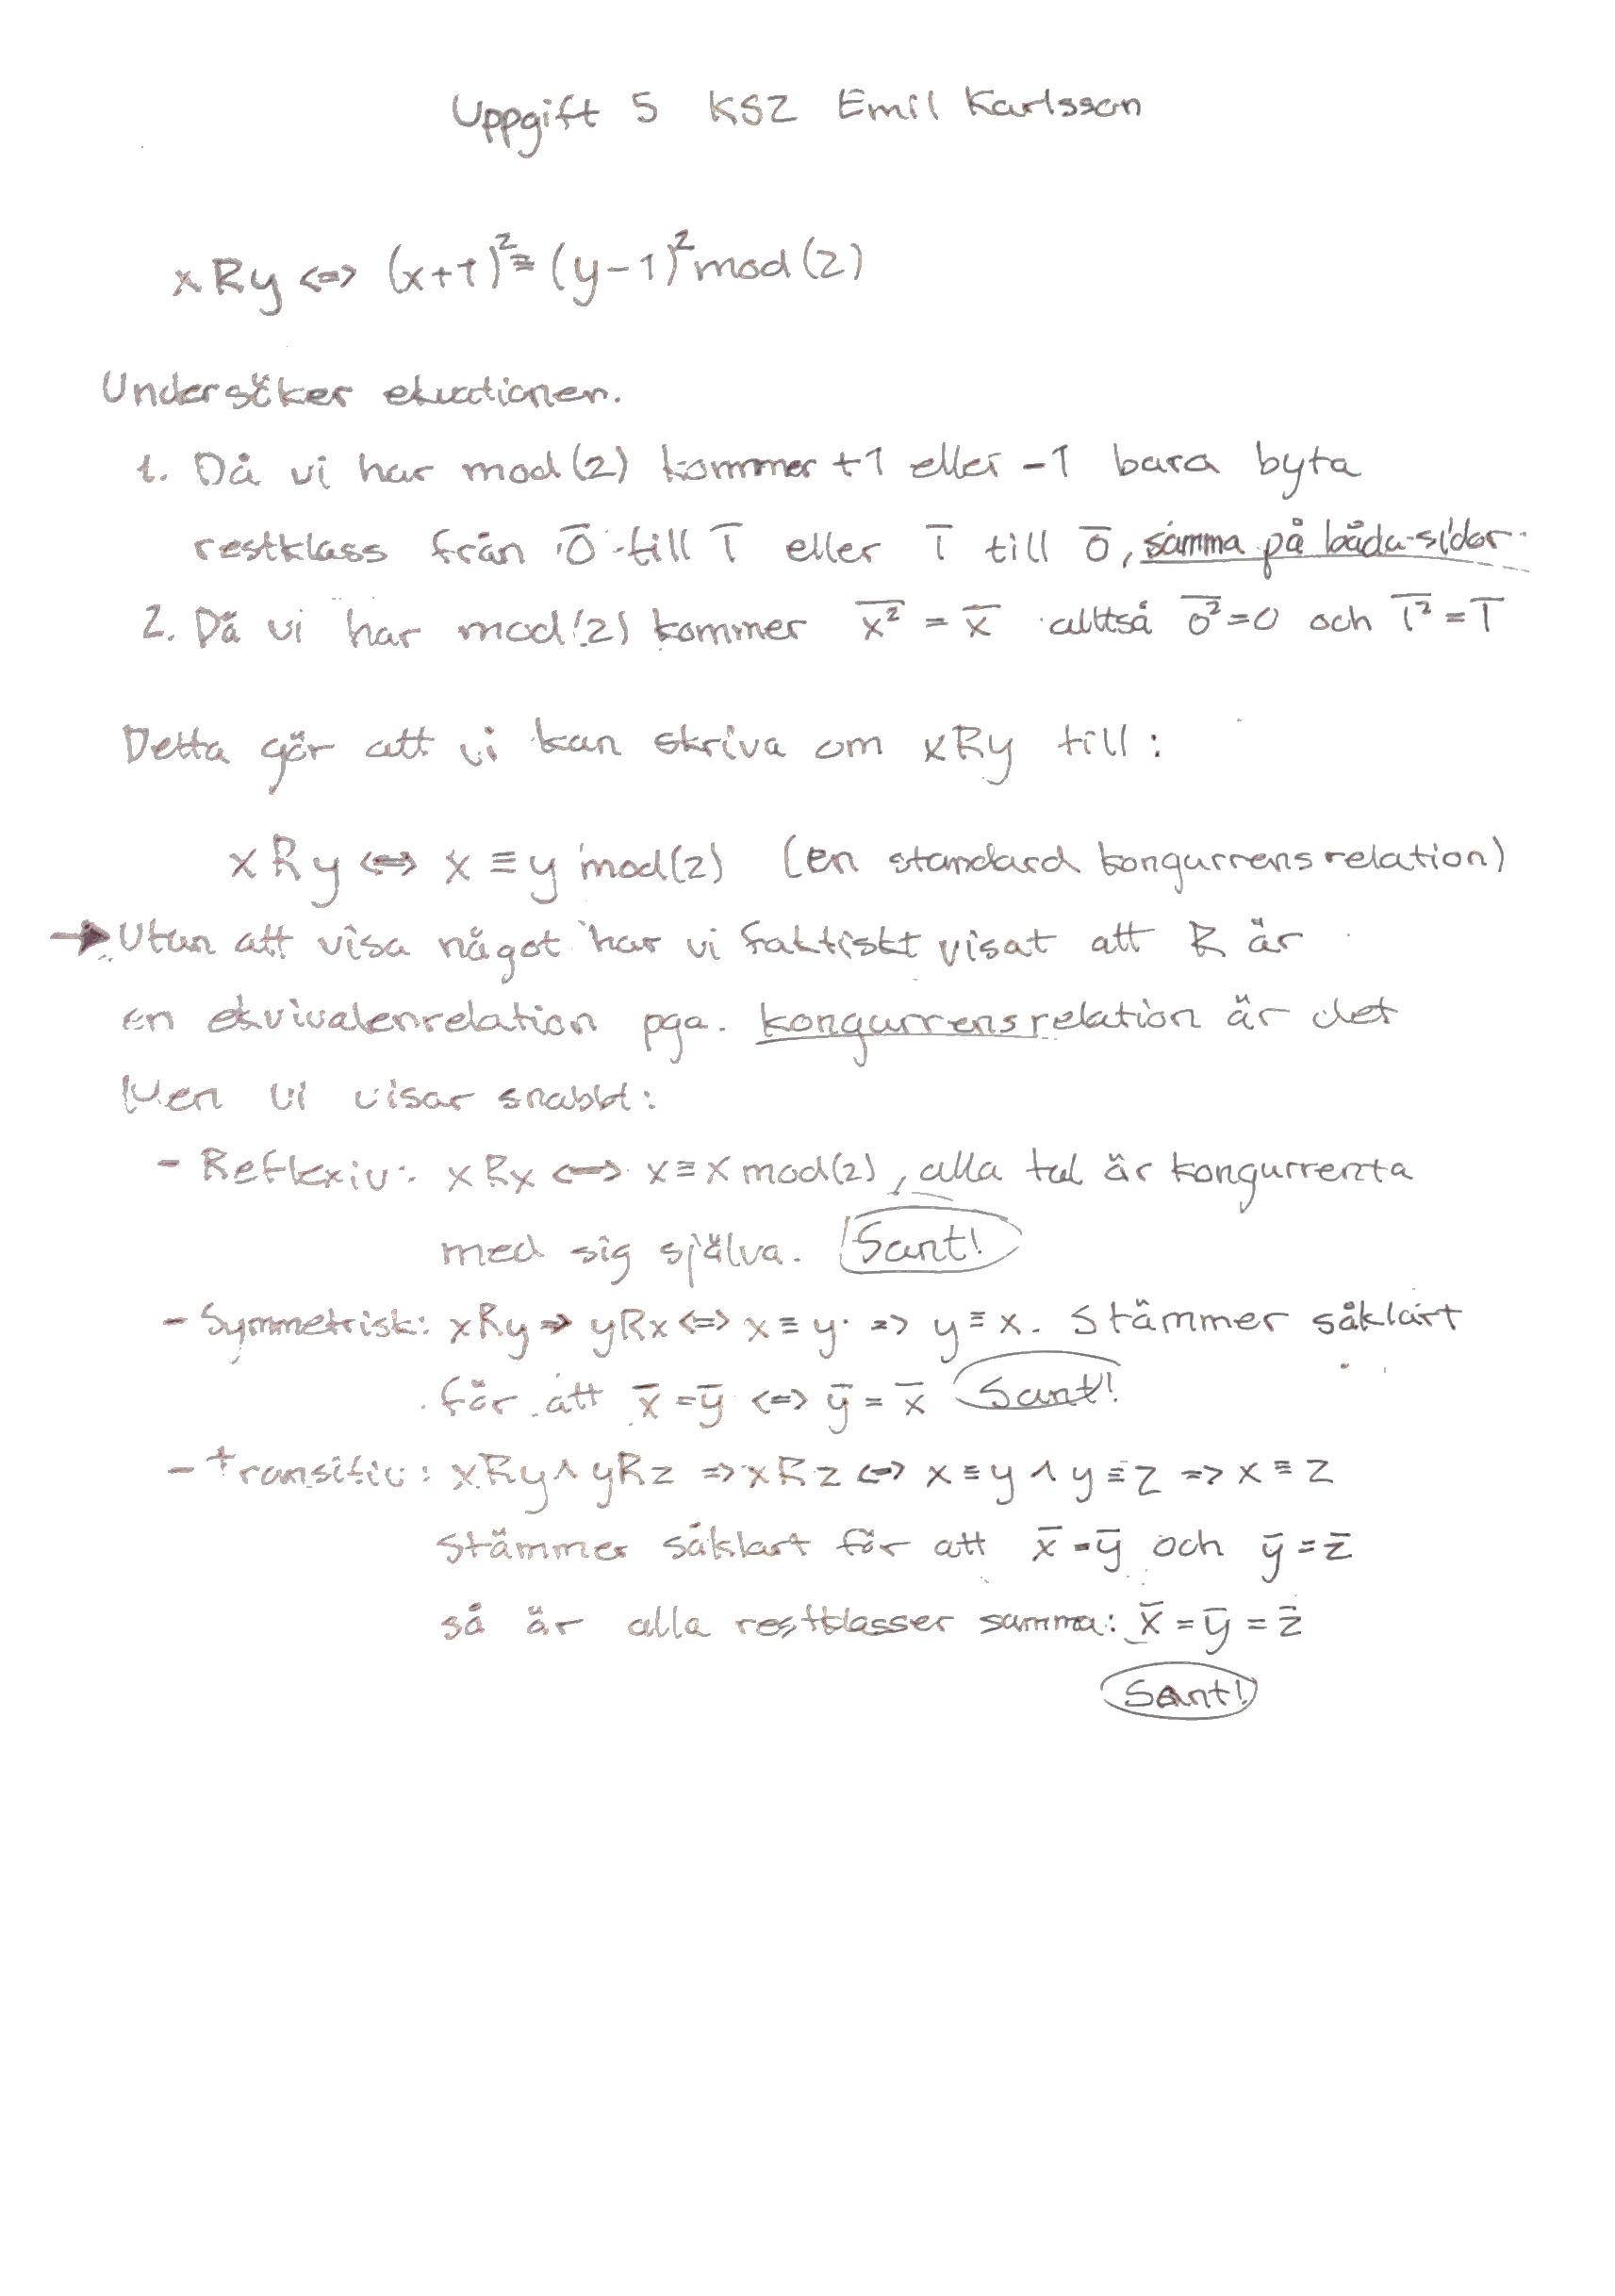 Uppgift 5 KS2 Emil Karlsson
xRy <=> (x+1)² ≡ (y-1)² mod(2)
Undersöker ekvationen.
1. Då vi har mod(2) kommer +1 eller -1 bara byta
restklass från 0̅ till 1̅ eller 1̅ till 0̅, samma på båda sidor
2. Då vi har mod(2) kommer x̅² = x̅ alltså 0̅² = 0 och 1̅² = 1̅
Detta gör att vi kan skriva om xRy till:
xRy <=> x ≡ y mod(2) (en standard kongurrensrelation)
→ Utan att visa något har vi faktiskt visat att R är
en ekvivalenrelation pga. kongurrensrelation är det
Men vi visar snabbt:
- Reflexiv: xRx <=> x ≡ x mod(2), alla tal är kongurrenta
med sig själva. Sant!
- Symmetrisk: xRy => yRx <=> x ≡ y => y ≡ x. Stämmer såklart
för att x̅ = y̅ <=> y̅ = x̅ Sant!
- transitiv: xRy ∧ yRz => xRz <=> x ≡ y ∧ y ≡ z => x ≡ z
stämmer såklart för att x̅ = y̅ och y̅ = z̅
så är alla restklasser samma: x̅ = y̅ = z̅
Sant!